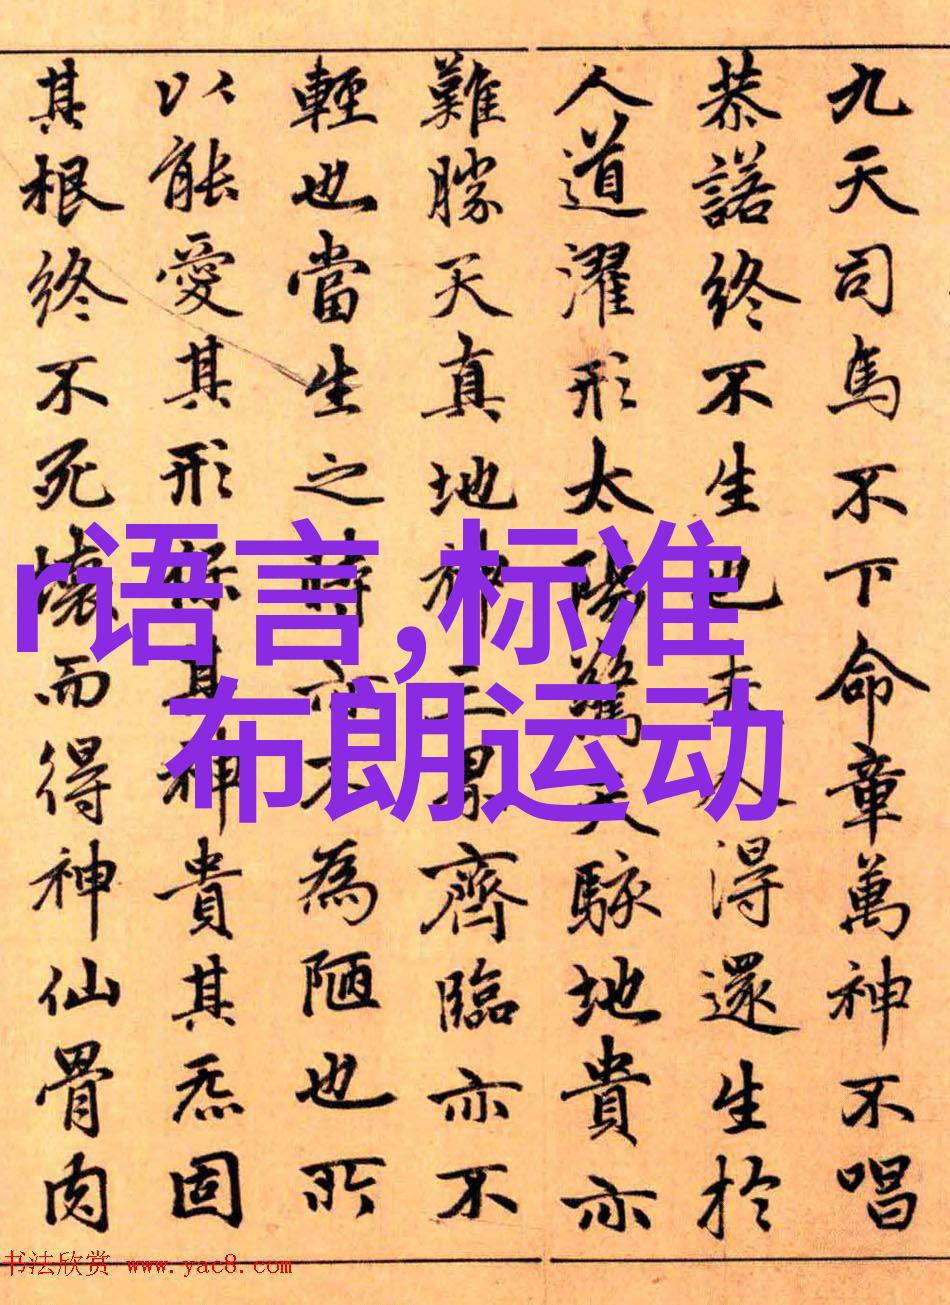 九天司馬不下命章萬神不唱
恭諾終不生也夫人得還生於
人道濯形太陽驚天駭地貴亦
難勝天真地神三界齊臨亦不
輕也當生之時亦不為陋也所
以能愛其形保其神貴其炁固
其根終不死壞而得神仙骨肉
r语言,标准
布朗运动
书法欣赏 www.yac8.com